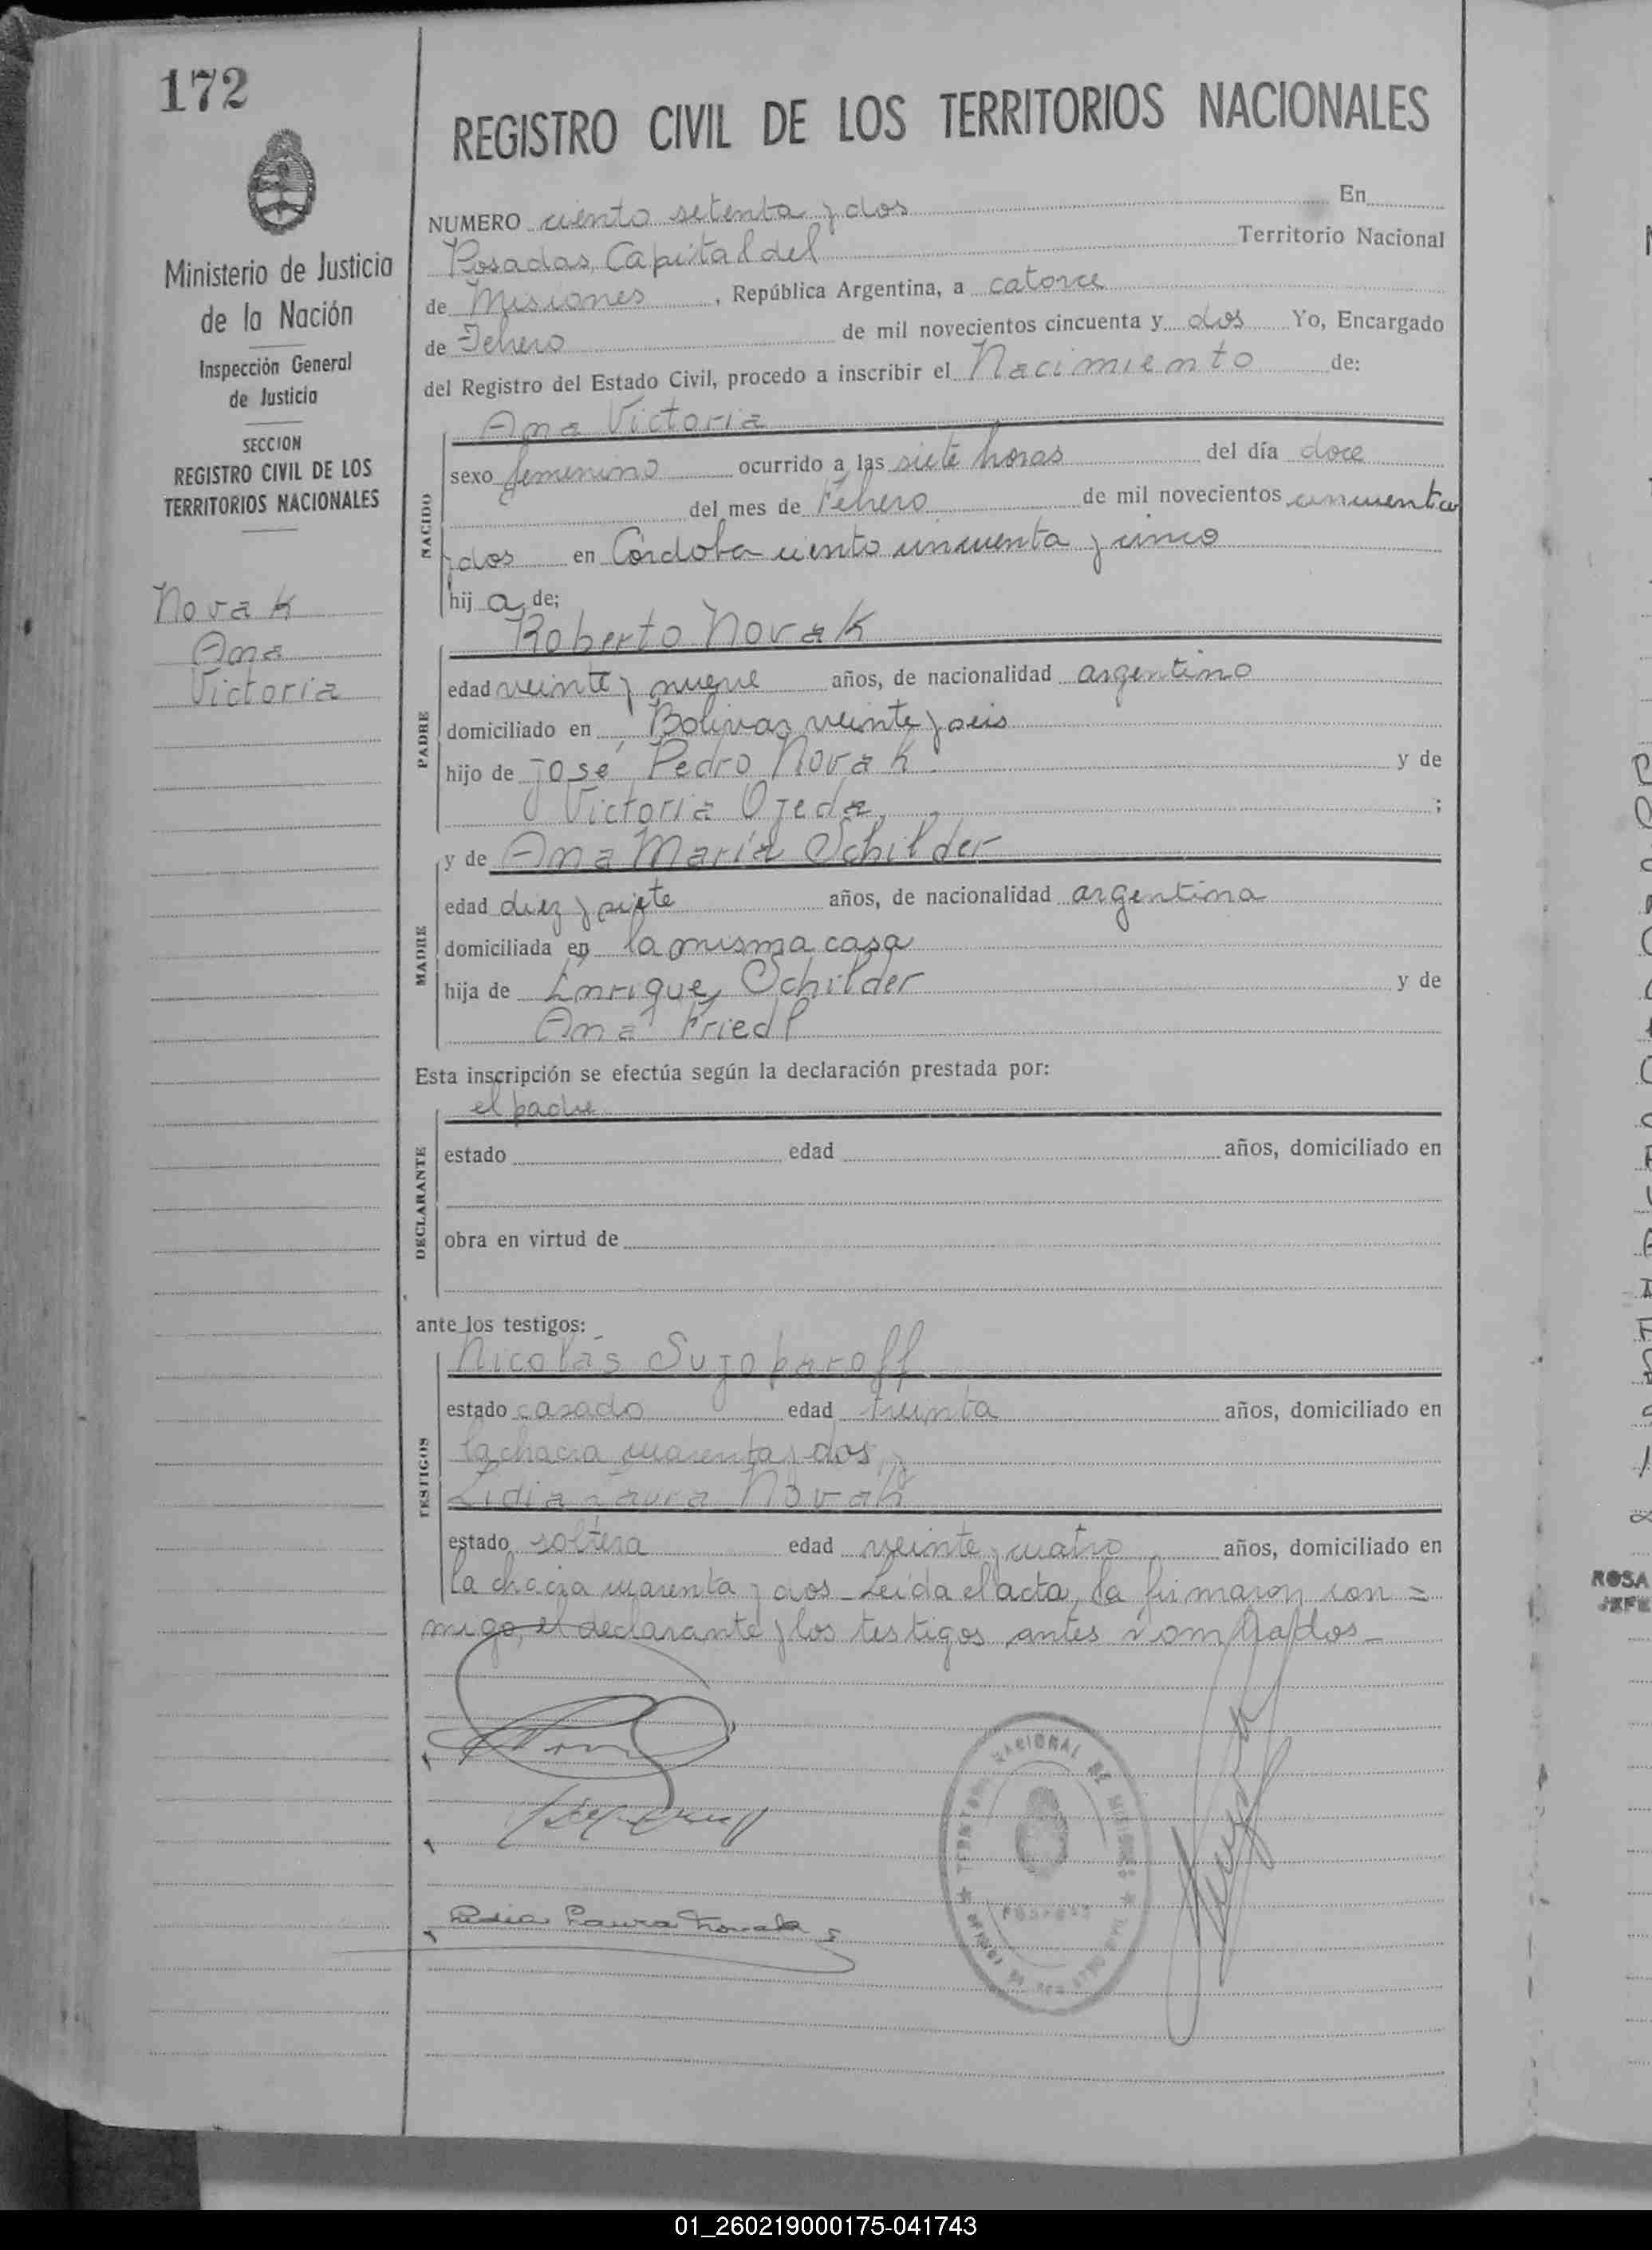 172
REGISTRO CIVIL DE LOS TERRITORIOS NACIONALES
Ministerio de Justicia
de la Nación
Inspección General
de Justicia
SECCION
REGISTRO CIVIL DE LOS
TERRITORIOS NACIONALES
Novak
Ana
Victoria
NUMERO ciento setenta y dos En
Posadas, Capital del Territorio Nacional
de Misiones, República Argentina, a catorce
de Febrero de mil novecientos cincuenta y dos Yo, Encargado
del Registro del Estado Civil, procedo a inscribir el Nacimiento de:
Ana Victoria
NACIDO
sexo femenino ocurrido a las siete horas del día doce
del mes de Febrero de mil novecientos cincuenta
y dos en Córdoba ciento cincuenta y cinco
hij a de;
Roberto Novak
PADRE
edad veinte y nueve años, de nacionalidad argentino
domiciliado en Bolivar veinte y seis
hijo de José Pedro Novak y de
Victoria Ojeda ;
y de Ana María Schilder
MADRE
edad diez y siete años, de nacionalidad argentina
domiciliada en la misma casa
hija de Enrique Schilder y de
Ana Friedl
Esta inscripción se efectúa según la declaración prestada por:
el padre
DECLARANTE
estado edad años, domiciliado en
obra en virtud de
ante los testigos:
Nicolás Sujoparoff
TESTIGOS
estado casado edad treinta años, domiciliado en
la chacra cuarenta y dos y
Lidia Laura Novak
estado soltera edad veinte y cuatro años, domiciliado en
la chacra cuarenta y dos - Leída el acta, la firmaron con =
migo, el declarante y los testigos antes nombrados -
Lidia Laura Novak
TERRITORIO NACIONAL DE MISIONES
POSADAS
ROSA
JEFE
01_260219000175-041743